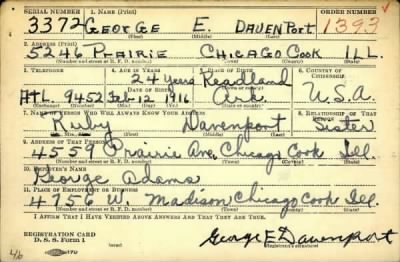 SERIAL NUMBER 1. NAME (Print) ORDER NUMBER
3372 GEORGE E. DAVENPORT 1393
(First) (Middle) (Last)
2. ADDRESS (Print)
5246 PRAIRIE CHICAGO COOK ILL.
(Number and street or R. F. D. number) (Town) (County) (State)
3. TELEPHONE 4. AGE IN YEARS 5. PLACE OF BIRTH 6. COUNTRY OF CITIZENSHIP
24 years Readland
DATE OF BIRTH
ATL. 9452 Feb 12 1916 U.S.A.
(Exchange) (Number) (Mo.) (Day) (Yr.) (State or country)
7. NAME OF PERSON WHO WILL ALWAYS KNOW YOUR ADDRESS 8. RELATIONSHIP OF THAT PERSON
Ruby Davenport Sister
(Mr., Mrs., Miss) (First) (Middle) (Last)
9. ADDRESS OF THAT PERSON
4559 Prairie Ave. Chicago Cook Ill.
(Number and street or R. F. D. number) (Town) (County) (State)
10. EMPLOYER'S NAME
George Adams
11. PLACE OF EMPLOYMENT OR BUSINESS
4756 W. Madison Chicago Cook Ill.
(Number and street or R. F. D. number) (Town) (County) (State)
I AFFIRM THAT I HAVE VERIFIED ABOVE ANSWERS AND THAT THEY ARE TRUE.
REGISTRATION CARD
D. S. S. Form 1
George E Davenport
(Registrant's signature)